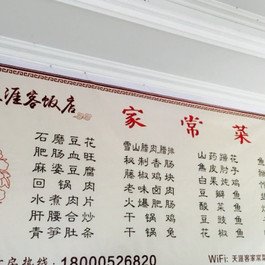 天涯客饭店
家常菜
石磨豆花
肥肠血旺
麻婆豆腐
回锅肉
水煮肉片
肝腰合炒
青笋肚条
雪山腊肉腊排
秘制香肠
藤椒鸡块
老味卤肉
火爆肥肠
干锅鸡
干锅兔
山药蹄花
焦皮肘子
白果炖鸡
豆瓣鱼
酸菜鱼
豆豉鱼
花椒鱼
热线:18000526820
WiFi: 天涯客家常菜